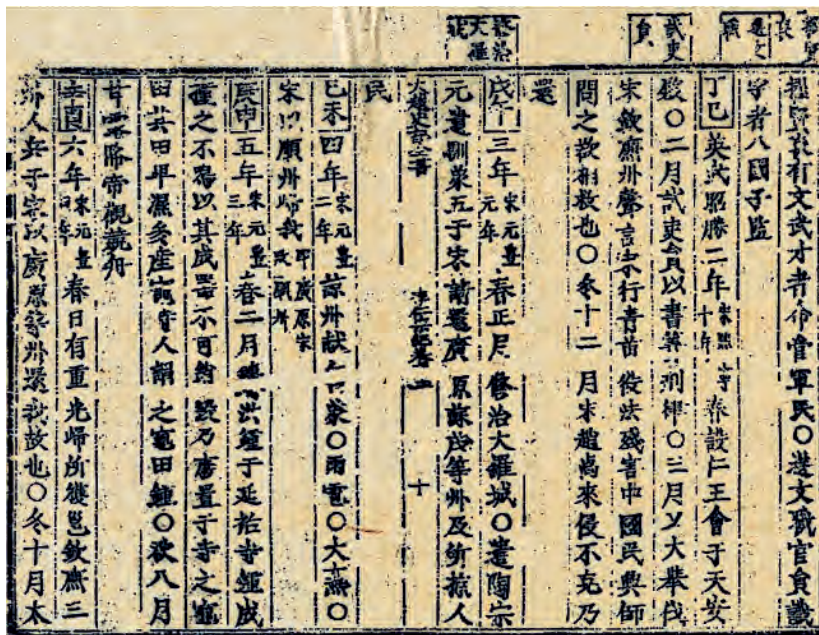 擇賢良
選文職
試吏員
修治大羅城
擇賢良有文武才者命管軍民〇選文職官員識
字者入國子監
丁巳英武昭勝二年宋熙寧十年春設仁王會于天安
殿〇二月試吏員以書筭刑律〇三月又大舉伐
宋欽廉州聲言宋行青苗役法殘害中國民興師
問之欲相救也〇冬十二月宋趙卨來侵不克乃
還
戊午三年宋元豐元年春正月修治大羅城〇遣陶宗
元遺馴象五于宋請還廣原蘇茂等州及所掠人
大越史記全書 李仁宗紀卷 十
民
己未四年宋元豐二年諒州獻白象〇雨雹〇大熟〇
宋以順州歸我即廣原宋改順州
庚申五年宋元豐三年春二月鑄洪鍾于延祐寺鍾成
撞之不鳴以其成器不可銷毀乃廣置于寺之龜
田其田卑濕多產龜時人謂之龜田鍾〇秋八月
甘露降帝觀競舟
辛酉六年宋元豐四年春日有重光歸所獲邕欽廉三
州人兵于宋以廣原等州還我故也〇冬十月太